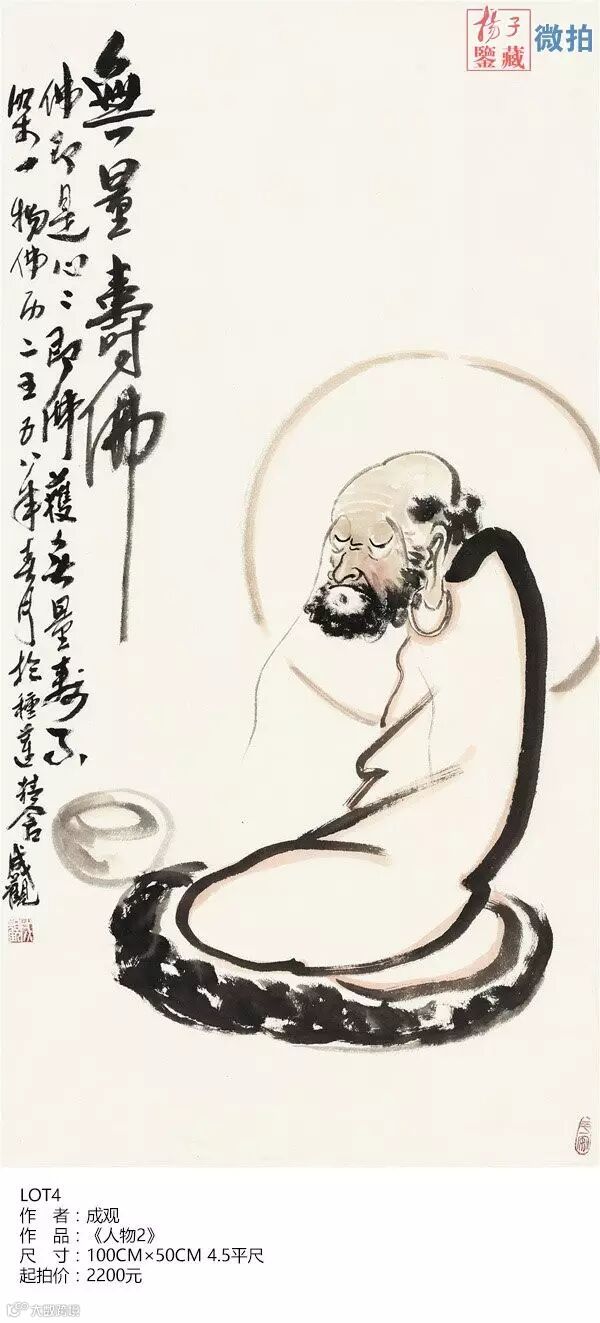 揚子
鑒藏
微拍
無量壽佛
佛即是心心即佛獲無量壽不
染一物佛历二五五八年春月於種蓮精舍成觀
LOT4
作 者：成观
作 品：《人物2》
尺 寸：100CM×50CM 4.5平尺
起拍价：2200元
大医跨境